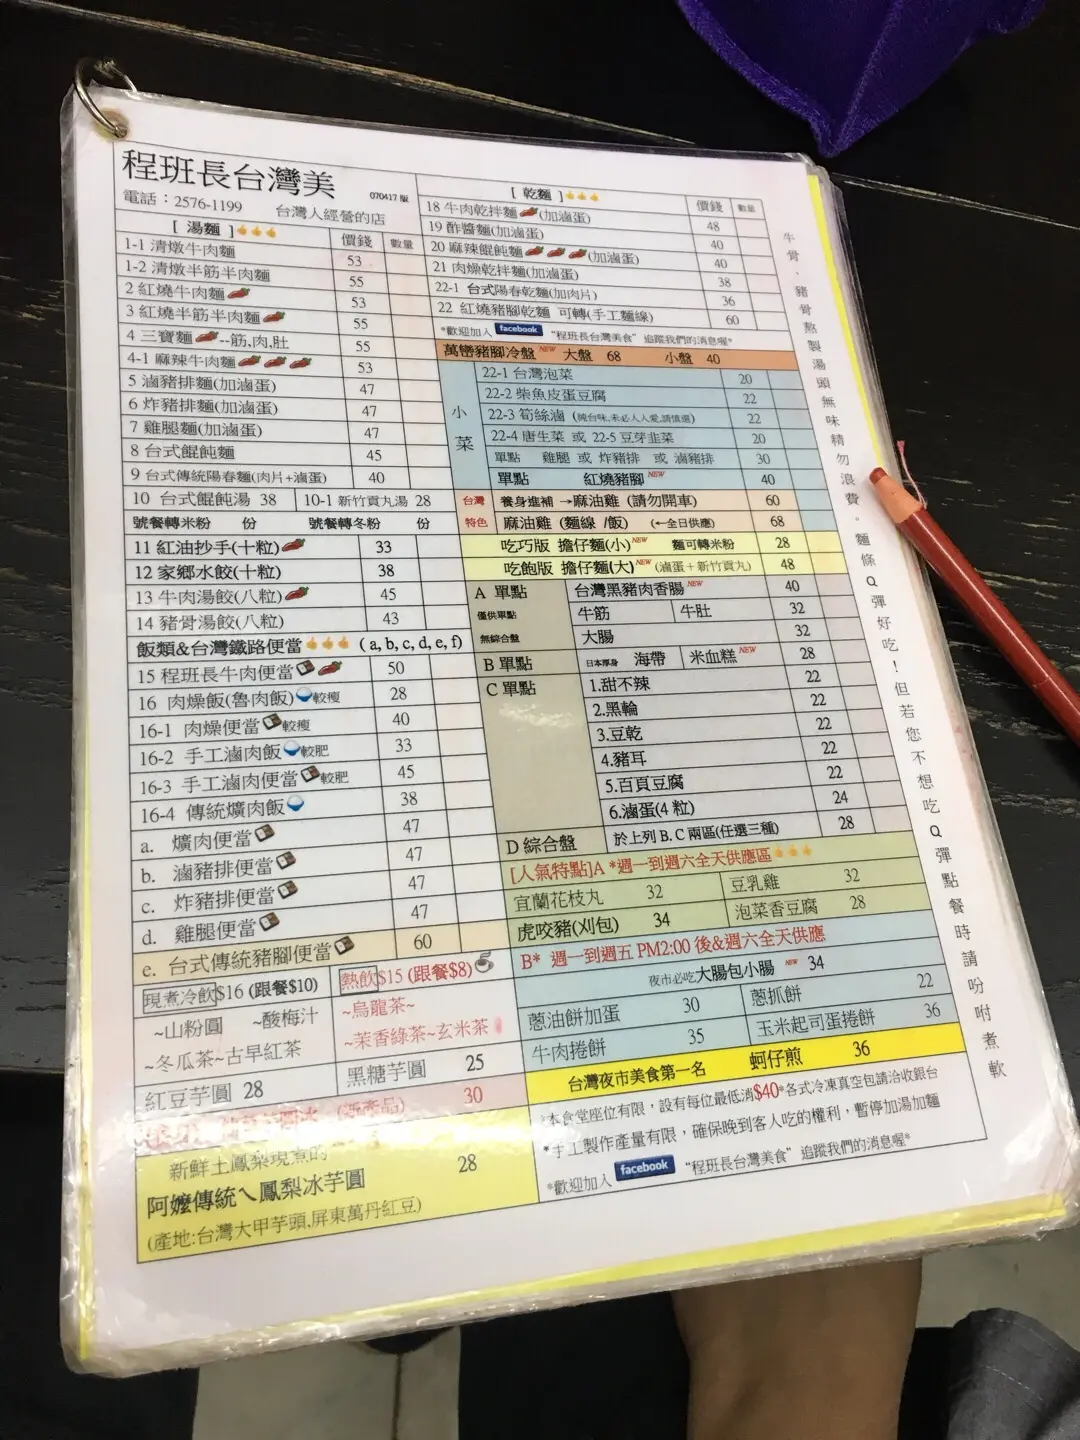 程班長台灣美
070417 版
電話：2576-1199 台灣人經營的店
[ 湯麵 ] 價錢 數量
1-1 清燉牛肉麵 53
1-2 清燉半筋半肉麵 55
2 紅燒牛肉麵 53
3 紅燒半筋半肉麵 55
4 三寶麵 --筋,肉,肚 55
4-1 麻辣牛肉麵 53
5 滷豬排麵(加滷蛋) 47
6 炸豬排麵(加滷蛋) 47
7 雞腿麵(加滷蛋) 47
8 台式餛飩麵 45
9 台式傳統陽春麵(肉片+滷蛋) 40
10 台式餛飩湯 38 10-1 新竹貢丸湯 28
號餐轉米粉 份 號餐轉冬粉 份
11 紅油抄手(十粒) 33
12 家鄉水餃(十粒) 38
13 牛肉湯餃(八粒) 45
14 豬骨湯餃(八粒) 43
飯類&台灣鐵路便當 ( a, b, c, d, e, f)
15 程班長牛肉便當 50
16 肉燥飯(魯肉飯) 較瘦 28
16-1 肉燥便當 較瘦 40
16-2 手工滷肉飯 較肥 33
16-3 手工滷肉便當 較肥 45
16-4 傳統爌肉飯 38
a. 爌肉便當 47
b. 滷豬排便當 47
c. 炸豬排便當 47
d. 雞腿便當 47
e. 台式傳統豬腳便當 60
現煮冷飲$16 (跟餐$10) 熱飲$15 (跟餐$8)
~山粉圓 ~酸梅汁 ~烏龍茶~
~冬瓜茶~古早紅茶 ~茉香綠茶~玄米茶
紅豆芋圓 28 黑糖芋圓 25
(新產品) 30
新鮮土鳳梨現煮的
阿嬤傳統ㄟ鳳梨冰芋圓 28
(產地:台灣大甲芋頭,屏東萬丹紅豆)
[ 乾麵 ] 價錢 數量
18 牛肉乾拌麵 (加滷蛋) 48
19 酢醬麵(加滷蛋) 40
20 麻辣餛飩麵 (加滷蛋) 40
21 肉燥乾拌麵(加滷蛋) 38
22-1 台式陽春乾麵(加肉片) 36
22 紅燒豬腳乾麵 可轉(手工麵線) 60
*歡迎加入 facebook "程班長台灣美食" 追蹤我們的消息喔*
萬巒豬腳冷盤 NEW 大盤 68 小盤 40
小菜
22-1 台灣泡菜 20
22-2 柴魚皮蛋豆腐 22
22-3 筍絲滷 (純台味,未必人人愛,請慎選) 22
22-4 唐生菜 或 22-5 豆芽韭菜 20
單點 雞腿 或 炸豬排 或 滷豬排 30
單點 紅燒豬腳 NEW 40
台灣特色
養身進補 →麻油雞 (請勿開車) 60
麻油雞 (麵線 /飯) (←全日供應) 68
吃巧版 擔仔麵(小) NEW 麵可轉米粉 28
吃飽版 擔仔麵(大) NEW (滷蛋+新竹貢丸) 48
A 單點 台灣黑豬肉香腸 NEW 40
僅供單點 牛筋 牛肚 32
無綜合盤 大腸 32
B 單點 日本厚身 海帶 米血糕 NEW 28
C 單點 1.甜不辣 22
2.黑輪 22
3.豆乾 22
4.豬耳 22
5.百頁豆腐 22
6.滷蛋(4 粒) 24
D 綜合盤 於上列 B. C 兩區(任選三種) 28
[人氣特點]A *週一到週六全天供應區
宜蘭花枝丸 32 豆乳雞 32
虎咬豬(刈包) 34 泡菜香豆腐 28
B* 週一到週五 PM2:00 後&週六全天供應
夜市必吃大腸包小腸 NEW 34
蔥油餅加蛋 30 蔥抓餅 22
牛肉捲餅 35 玉米起司蛋捲餅 36
台灣夜市美食第一名 蚵仔煎 36
*本食堂座位有限，設有每位最低消$40*各式冷凍真空包請洽收銀台
*手工製作產量有限，確保晚到客人吃的權利，暫停加湯加麵
*歡迎加入 facebook "程班長台灣美食" 追蹤我們的消息喔*
牛骨．豬骨熬製湯頭無味精勿浪費。麵條Q彈好吃！但若您不想吃Q彈點餐時請吩咐煮軟